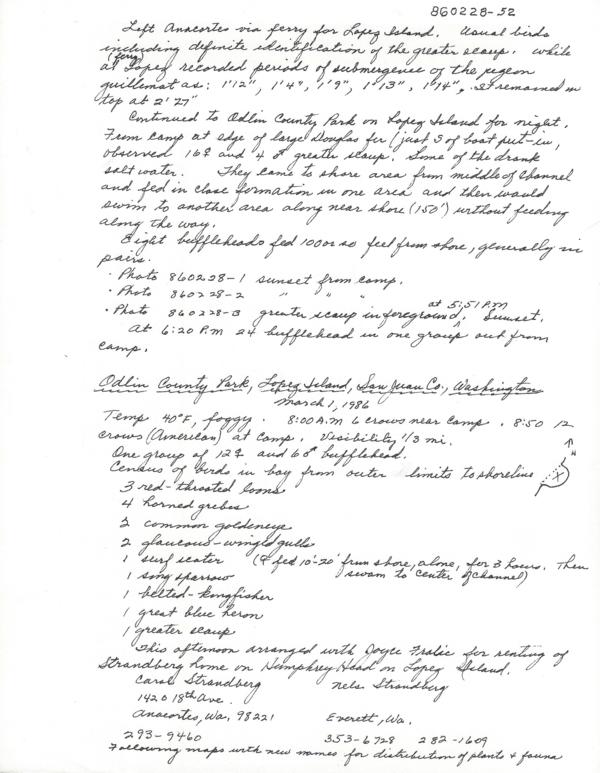 860228-52
Left Anacortes via ferry for Lopez Island. Usual birds
including definite identification of the greater scaup. While
at Lopez (ferry) recorded periods of submergence of the pigeon
guillemot as: 1'12", 1'4", 1'9", 1'13", 1'14", . It remained on
top at 2'27"
Continued to Odlin County Park on Lopez Island for night.
From camp at edge of large Douglas fir (just S of boat put-in,
observed 16♀ and 4♂ greater scaup. Some of the drank
salt water. They came to shore area from middle of channel
and fed in close formation in one area and then would
swim to another area along near shore (150') without feeding
along the way.
Eight buffleheads fed 100 or so feet from shore, generally in
pairs.
· Photo 860228-1 sunset from camp.
· Photo 860228-2 " " "
· Photo 860228-3 greater scaup in foreground at 5:51 P.M. Sunset.
At 6:20 P.M 24 bufflehead in one group out from
camp.
Odlin County Park, Lopez Island, San Juan Co., Washington
March 1, 1986
Temp 40°F, foggy. 8:00 A.M 6 crows near camp. 8:50 12
crows (American) at camp. Visibility 1/3 mi.
One group of 12♀ and 6♂ bufflehead.
Census of birds in bay from outer limits to shoreline
N
X
3 red-throated loons
4 horned grebes
2 common goldeneye
2 glaucous-winged gulls
1 surf scoter (♀ fed 10'-20' from shore, alone, for 3 hours. Then
1 song sparrow swam to center of channel)
1 belted-kingfisher
1 great blue heron
1 greater scaup
This afternoon arranged with Joyce Fralic for renting of
Strandberg home on Humphrey Head on Lopez Island.
Carol Strandberg Nels Strandberg
1420 18th Ave.
Anacortes, Wa. 98221 Everett, Wa.
293-9460 353-6728 282-1609
Following maps with new names for distribution of plants & fauna